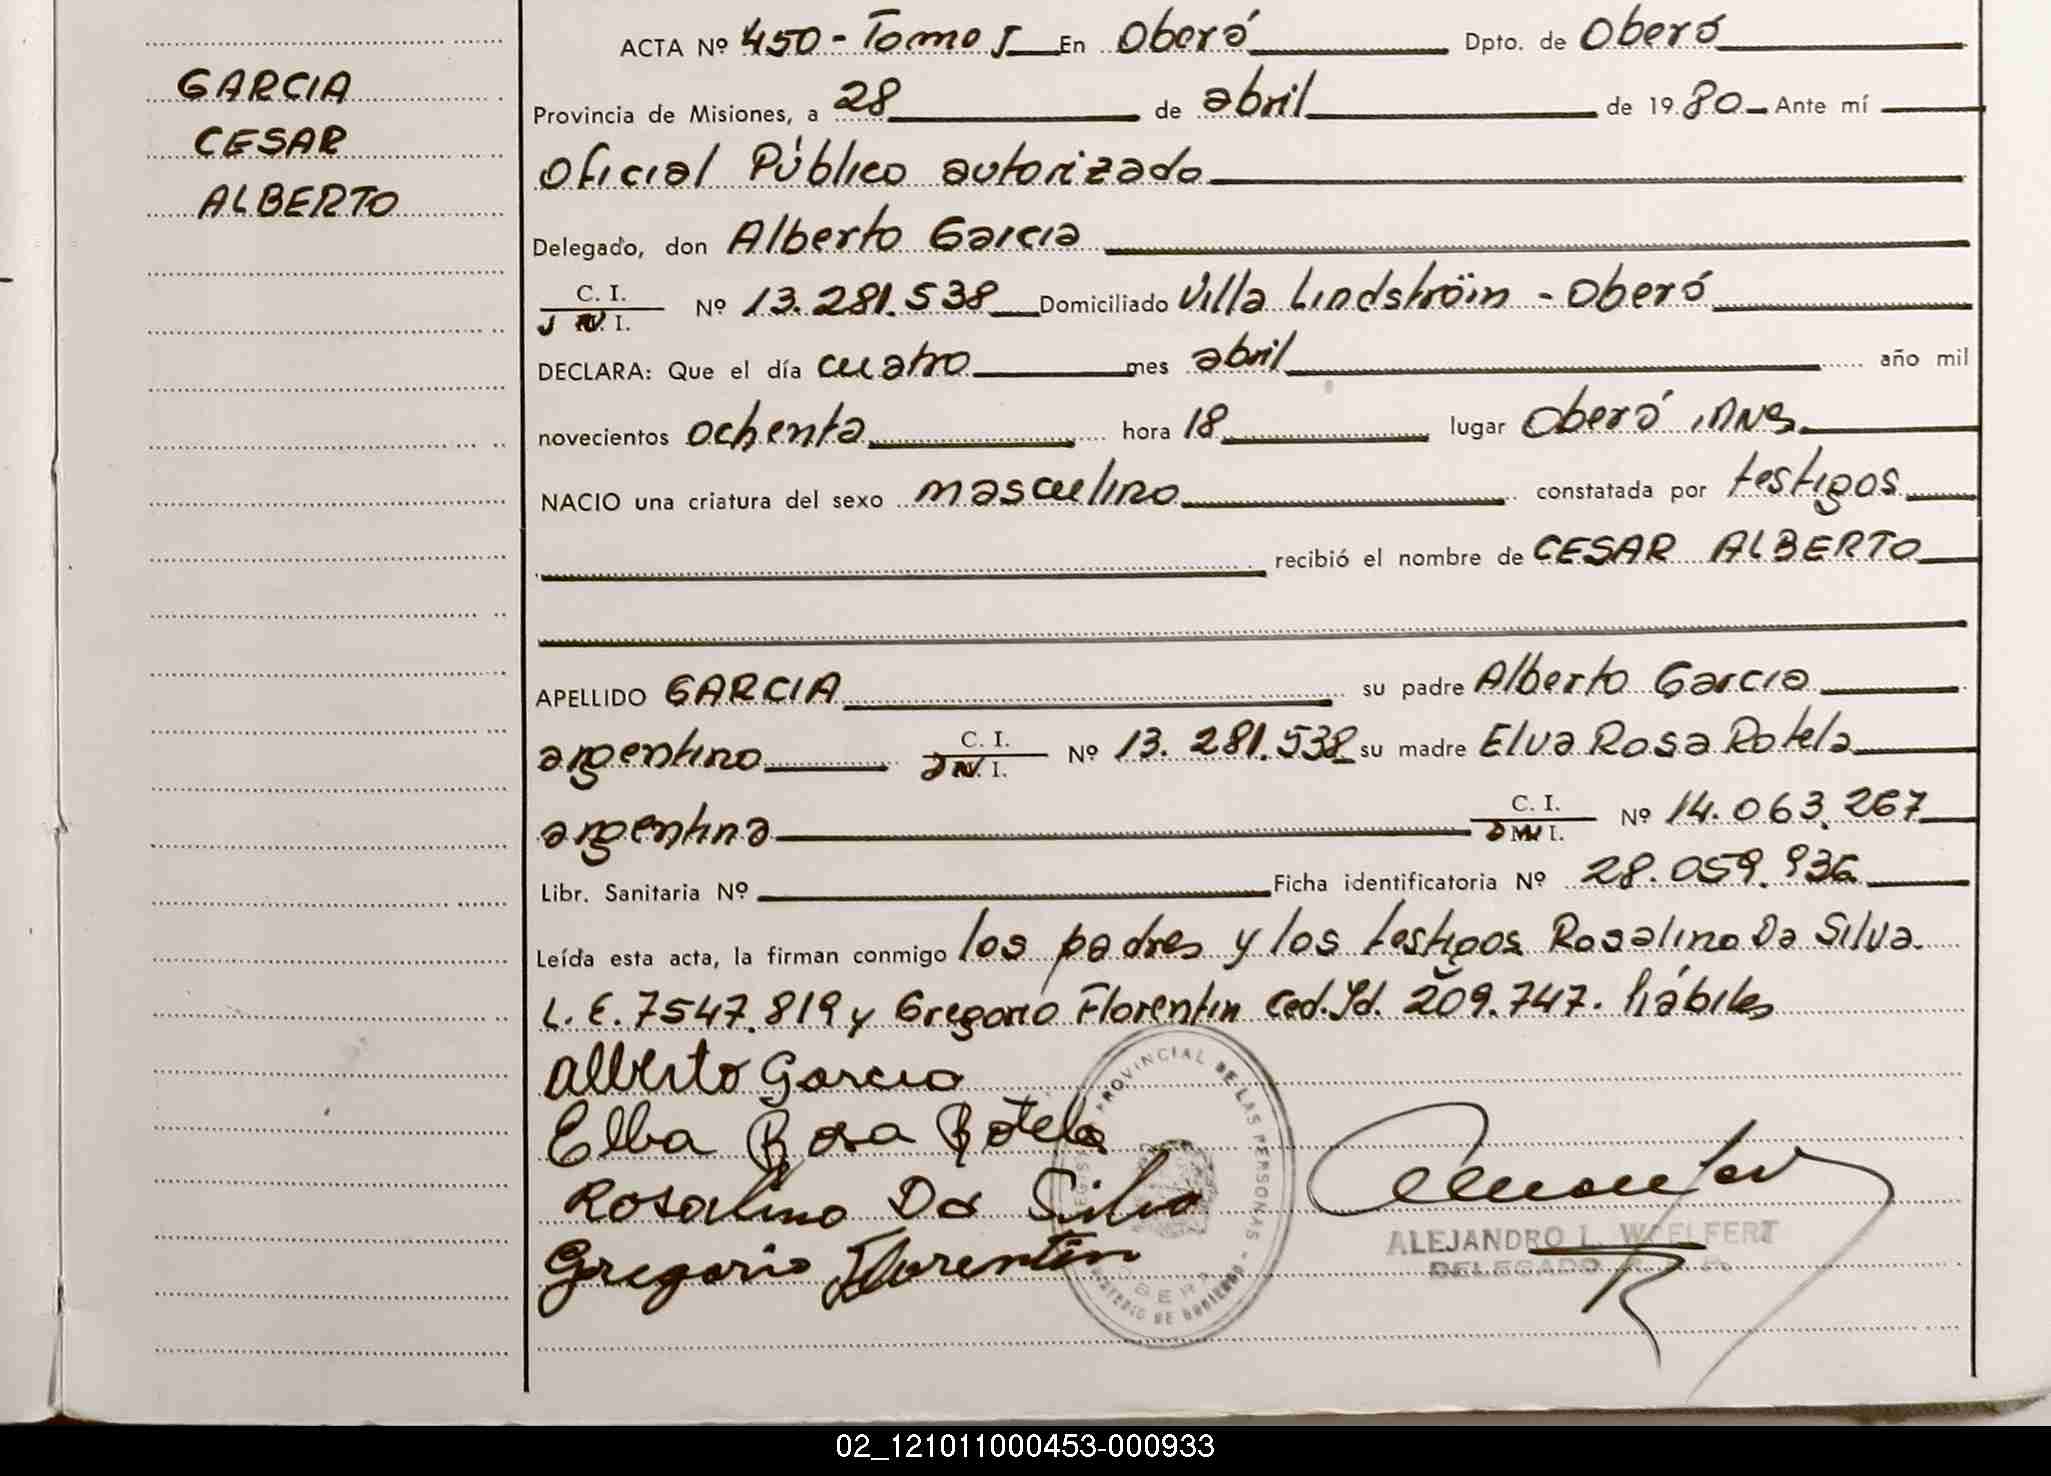 GARCIA
CESAR
ALBERTO
ACTA Nº 450 - Tomo I En Oberá Dpto. de Oberá
Provincia de Misiones, a 28 de abril de 1980 Ante mí
Oficial Público autorizado
Delegado, don Alberto Garcia
C. I.
Nº 13.281.538 Domiciliado Villa Lindströin - Oberá
DECLARA: Que el día cuatro mes abril año mil
novecientos ochenta hora 18 lugar Oberá Mns
NACIO una criatura del sexo masculino constatada por testigos
recibió el nombre de CESAR ALBERTO
APELLIDO GARCIA su padre Alberto Garcia
argentino C. I. Nº 13.281.538 su madre Elva Rosa Rotela
argentina C. I. Nº 14.063.267
Libr. Sanitaria Nº Ficha identificatoria Nº 28.059.936
Leída esta acta, la firman conmigo los padres y los testigos Rosalino Da Silva.
L.E. 7547.819 y Gregorio Florentin Ced. Id. 209.747. hábiles
Alberto Garcia
Elba Rosa Rotela
Rosalino Da Silva
Gregorio Florentin
PROVINCIAL DE LAS PERSONAS -
ALEJANDRO L. WAELFERT
DELEGADO
02_121011000453-000933